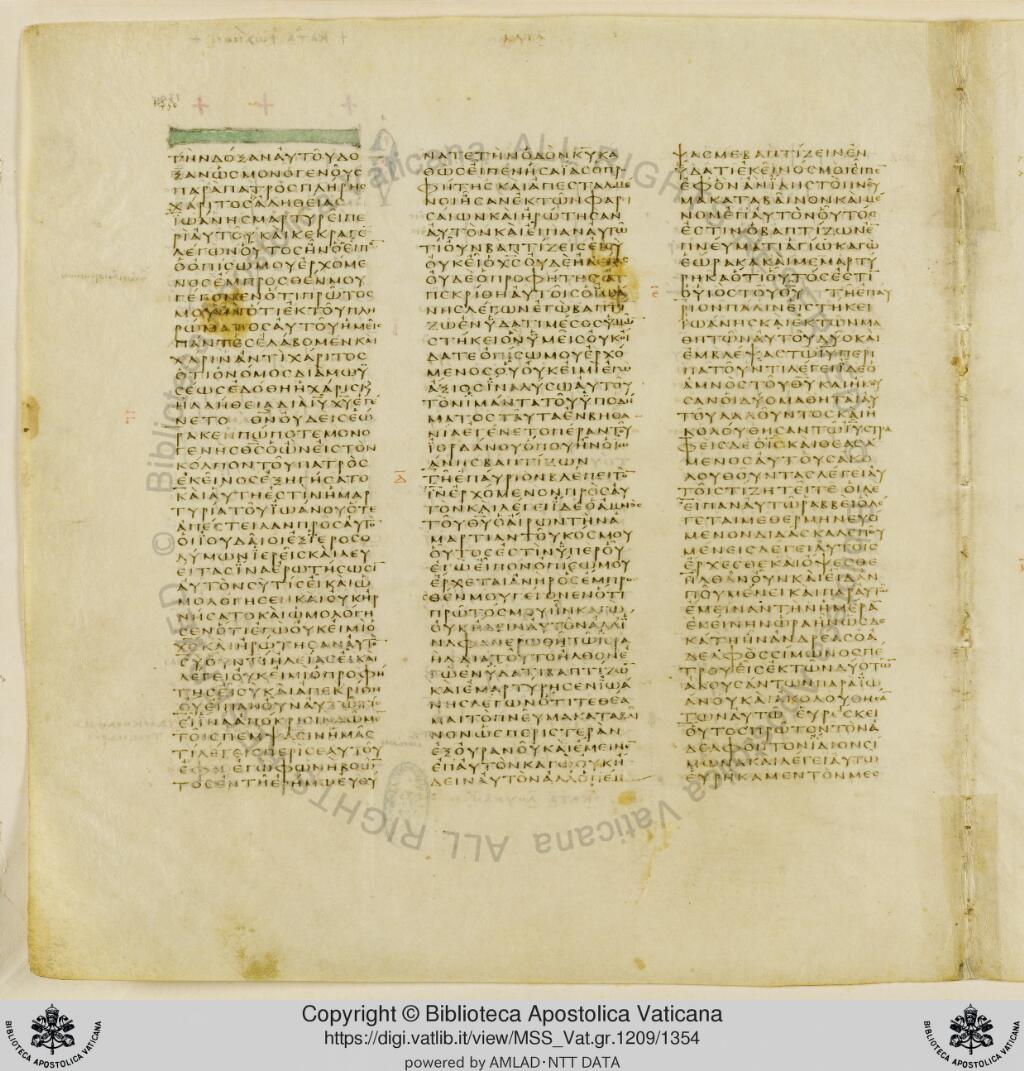 ΤΗΝΔΟΞΑΝΑΥΤΟΥΔΟ
ΞΑΝΩΣΜΟΝΟΓΕΝΟΥΣ
ΠΑΡΑΠΑΤΡΟΣΠΛΗΡΗΣ
ΧΑΡΙΤΟΣΑΛΗΘΕΙΑΣ
ΙΩΑΝΗΣΜΑΡΤΥΡΕΙΠΕ
ΡΙΑΥΤΟΥΚΑΙΚΕΚΡΑΓΕ
ΛΕΓΩΝΟΥΤΟΣΗΝΟΕΙΠΩ
ΟΟΠΙΣΩΜΟΥΕΡΧΟΜΕ
ΝΟΣΕΜΠΡΟΣΘΕΝΜΟΥ
ΓΕΓΟΝΕΝΟΤΙΠΡΩΤΟΣ
ΜΟΥΗΝΟΤΙΕΚΤΟΥΠΛΗ
ΡΩΜΑΤΟΣΑΥΤΟΥΗΜΕΙΣ
ΠΑΝΤΕΣΕΛΑΒΟΜΕΝΚΑΙ
ΧΑΡΙΝΑΝΤΙΧΑΡΙΤΟΣ
ΟΤΙΟΝΟΜΟΣΔΙΑΜΩΥ
ΣΕΩΣΕΔΟΘΗΗΧΑΡΙΣΚΑΙ
ΗΑΛΗΘΕΙΑΔΙΑΙΥΧΥΕΓΕ
ΝΕΤΟ ΘΝΟΥΔΕΙΣΕΩ
ΡΑΚΕΝΠΩΠΟΤΕΜΟΝΟ
ΓΕΝΗΣΘΣΟΩΝΕΙΣΤΟΝ
ΚΟΛΠΟΝΤΟΥΠΑΤΡΟΣ
ΕΚΕΙΝΟΣΕΞΗΓΗΣΑΤΟ
ΚΑΙΑΥΤΗΕΣΤΙΝΗΜΑΡ
ΤΥΡΙΑΤΟΥΙΩΑΝΟΥΟΤΕ
ΑΠΕΣΤΕΙΛΑΝΠΡΟΣΑΥΤΟ
ΟΙΙΟΥΔΑΙΟΙΕΞΙΕΡΟΣΟ
ΛΥΜΩΝΙΕΡΕΙΣΚΑΙΛΕΥ
ΕΙΤΑΣΙΝΑΕΡΩΤΗΣΩΣΙ
ΑΥΤΟΝΣΥΤΙΣΕΙΚΑΙΩ
ΜΟΛΟΓΗΣΕΝΚΑΙΟΥΚΗΡ
ΝΗΣΑΤΟΚΑΙΩΜΟΛΟΓΗ
ΣΕΝΟΤΙΕΓΩΟΥΚΕΙΜΙΟ
ΧΣΚΑΙΗΡΩΤΗΣΑΝΑΥΤΟ
ΣΥΟΥΝΤΙΗΛΕΙΑΣΕΙΚΑΙ
ΛΕΓΕΙΟΥΚΕΙΜΙΟΠΡΟΦΗ
ΤΗΣΕΙΣΥΚΑΙΑΠΕΚΡΙΘΗ
ΟΥΕΙΠΑΝΟΥΝΑΥΤΩΤΙΣ
ΕΙΙΝΑΑΠΟΚΡΙΣΙΝΔΩΜΕΝ
ΤΟΙΣΠΕΜΨΑΣΙΝΗΜΑΣ
ΤΙΛΕΓΕΙΣΠΕΡΙΣΕΑΥΤΟΥ
ΕΦΗΕΓΩΦΩΝΗΒΟΩΝ
ΤΟΣΕΝΤΗΕΡΗΜΩΕΥΘΥ
ΝΑΤΕΤΗΝΟΔΟΝΚΥΚΑ
ΘΩΣΕΙΠΕΝΗΣΑΙΑΣΟΠΡΟ
ΦΗΤΗΣΚΑΙΑΠΕΣΤΑΛΜΕ
ΝΟΙΗΣΑΝΕΚΤΩΝΦΑΡΙ
ΣΑΙΩΝΚΑΙΗΡΩΤΗΣΑΝ
ΑΥΤΟΝΚΑΙΕΙΠΑΝΑΥΤΩ
ΤΙΟΥΝΒΑΠΤΙΖΕΙΣΕΙΣΥ
ΟΥΚΕΙΟΧΣΟΥΔΕΗΛΕΙΑΣ
ΟΥΔΕΟΠΡΟΦΗΤΗΣΑ
ΠΕΚΡΙΘΗΑΥΤΟΙΣΟΙΩΑ
ΝΗΣΛΕΓΩΝΕΓΩΒΑΠΤΙ
ΖΩΕΝΥΔΑΤΙΜΕΣΟΣΥΜΩ
ΣΤΗΚΕΙΟΝΥΜΕΙΣΟΥΚΟΙ
ΔΑΤΕΟΠΙΣΩΜΟΥΕΡΧΟ
ΜΕΝΟΣΟΥΟΥΚΕΙΜΙΕΓΩ
ΑΞΙΟΣΙΝΑΛΥΣΩΑΥΤΟΥ
ΤΟΝΙΜΑΝΤΑΤΟΥΥΠΟΔΗ
ΜΑΤΟΣΤΑΥΤΑΕΝΒΗΘΑ
ΝΙΑΕΓΕΝΕΤΟΠΕΡΑΝΤΟΥ
ΙΟΡΔΑΝΟΥΟΠΟΥΗΝΟΙΩ
ΑΝΗΣΒΑΠΤΙΖΩΝ
ΤΗΕΠΑΥΡΙΟΝΒΛΕΠΕΙΤΟΝ
ΙΝΕΡΧΟΜΕΝΟΝΠΡΟΣΑΥ
ΤΟΝΚΑΙΛΕΓΕΙΙΔΕΟΑΜΝΟΣ
ΤΟΥΘΥΟΑΙΡΩΝΤΗΝΑ
ΜΑΡΤΙΑΝΤΟΥΚΟΣΜΟΥ
ΟΥΤΟΣΕΣΤΙΝΥΠΕΡΟΥ
ΕΓΩΕΙΠΟΝΟΠΙΣΩΜΟΥ
ΕΡΧΕΤΑΙΑΝΗΡΟΣΕΜΠΡΟ
ΣΘΕΝΜΟΥΓΕΓΟΝΕΝΟΤΙ
ΠΡΩΤΟΣΜΟΥΗΝΚΑΓΩ
ΟΥΚΗΔΕΙΝΑΥΤΟΝΑΛΛΙ
ΝΑΦΑΝΕΡΩΘΗΤΩΙΣΡΑ
ΗΛΔΙΑΤΟΥΤΟΗΛΘΟΝΕ
ΓΩΕΝΥΔΑΤΙΒΑΠΤΙΖΩ
ΚΑΙΕΜΑΡΤΥΡΗΣΕΝΙΩΑ
ΝΗΣΛΕΓΩΝΟΤΙΤΕΘΕΑ
ΜΑΙΤΟΠΝΕΥΜΑΚΑΤΑΒΑΙ
ΝΟΝΩΣΠΕΡΙΣΤΕΡΑΝ
ΕΞΟΥΡΑΝΟΥΚΑΙΕΜΕΙΝΕ
ΕΠΑΥΤΟΝΚΑΓΩΟΥΚΗ
ΔΕΙΝΑΥΤΟΝΑΛΛΟΠΕΜ
ΨΑΣΜΕΒΑΠΤΙΖΕΙΝΕΝ
ΥΔΑΤΙΕΚΕΙΝΟΣΜΟΙΕΙΠΕ
ΕΦΟΝΑΝΙΔΗΣΤΟΠΝΕΥ
ΜΑΚΑΤΑΒΑΙΝΟΝΚΑΙΜΕ
ΝΟΝΕΠΑΥΤΟΝΟΥΤΟΣ
ΕΣΤΙΝΟΒΑΠΤΙΖΩΝΕ
ΠΝΕΥΜΑΤΙΑΓΙΩΚΑΓΩ
ΕΩΡΑΚΑΚΑΙΜΕΜΑΡΤΥ
ΡΗΚΑΟΤΙΟΥΤΟΣΕΣΤΙ
ΟΥΙΟΣΤΟΥΘΥ ΤΗΕΠΑΥ
ΡΙΟΝΠΑΛΙΝΕΙΣΤΗΚΕΙ
ΙΩΑΝΗΣΚΑΙΕΚΤΩΝΜΑ
ΘΗΤΩΝΑΥΤΟΥΔΥΟΚΑΙ
ΕΜΒΛΕΨΑΣΤΩΙΥΠΕΡΙ
ΠΑΤΟΥΝΤΙΛΕΓΕΙΙΔΕΟ
ΑΜΝΟΣΤΟΥΘΥΚΑΙΗΚΟΥ
ΣΑΝΟΙΔΥΟΜΑΘΗΤΑΙΑΥ
ΤΟΥΛΑΛΟΥΝΤΟΣΚΑΙΗ
ΚΟΛΟΥΘΗΣΑΝΤΩΙΥΣΤΡΑ
ΦΕΙΣΔΕΟΙΣΚΑΙΘΕΑΣΑ
ΜΕΝΟΣΑΥΤΟΥΣΑΚΟ
ΛΟΥΘΟΥΝΤΑΣΛΕΓΕΙΑΥ
ΤΟΙΣΤΙΖΗΤΕΙΤΕΟΙΔΕ
ΕΙΠΑΝΑΥΤΩΡΑΒΒΕΙΟΛΕ
ΓΕΤΑΙΜΕΘΕΡΜΗΝΕΥΟ
ΜΕΝΟΝΔΙΔΑΣΚΑΛΕΠΟΥ
ΜΕΝΕΙΣΛΕΓΕΙΑΥΤΟΙΣ
ΕΡΧΕΣΘΕΚΑΙΟΨΕΣΘΕ
ΗΛΘΑΝΟΥΝΚΑΙΕΙΔΑΝ
ΠΟΥΜΕΝΕΙΚΑΙΠΑΡΑΥΤΩ
ΕΜΕΙΝΑΝΤΗΝΗΜΕΡΑ
ΕΚΕΙΝΗΝΩΡΑΗΝΩΣΔΕ
ΚΑΤΗΗΝΑΝΔΡΕΑΣΟΑ
ΔΕΛΦΟΣΣΙΜΩΝΟΣΠΕ
ΤΡΟΥΕΙΣΕΚΤΩΝΔΥΟΤΩ
ΑΚΟΥΣΑΝΤΩΝΠΑΡΑΙΩ
ΑΝΟΥΚΑΙΑΚΟΛΟΥΘΗΣΑ
ΤΩΝΑΥΤΩ ΕΥΡΙΣΚΕΙ
ΟΥΤΟΣΠΡΩΤΟΝΤΟΝΑ
ΔΕΛΦΟΝΤΟΝΙΔΙΟΝΣΙ
ΜΩΝΑΚΑΙΛΕΓΕΙΑΥΤΩ
ΕΥΡΗΚΑΜΕΝΤΟΝΜΕΣ
Copyright © Biblioteca Apostolica Vaticana
https://digi.vatlib.it/view/MSS_Vat.gr.1209/1354
powered by AMLAD·NTT DATA
BIBLIOTECA APOSTOLICA VATICANA
BIBLIOTECA APOSTOLICA VATICANA